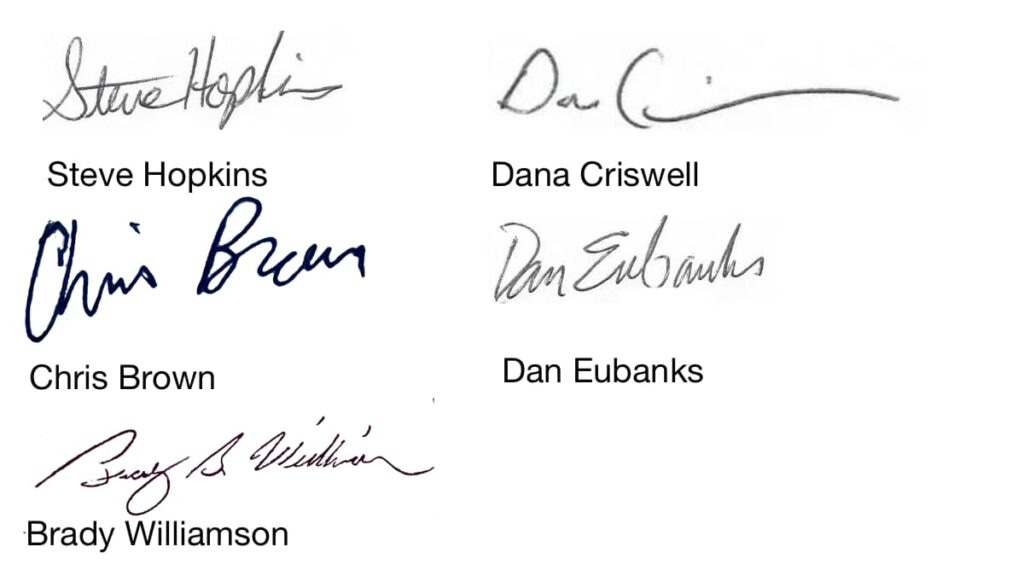 Steve Hopkins
Dana Criswell
Chris Brown
Dan Eubanks
Brady Williamson
Steve Hopkins
Chris Brown
Dan Eubanks